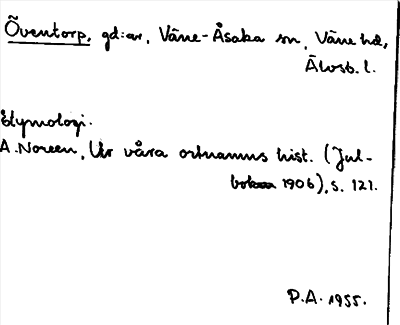 Öventorp, gd:ar, Väne-Åsaka sn, Väne hd,
Älvsb. l.
Etymologi.
A. Noreen, Ur våra ortnamns hist. (Jul-
boken 1906), s. 121.
P.A. 1955.